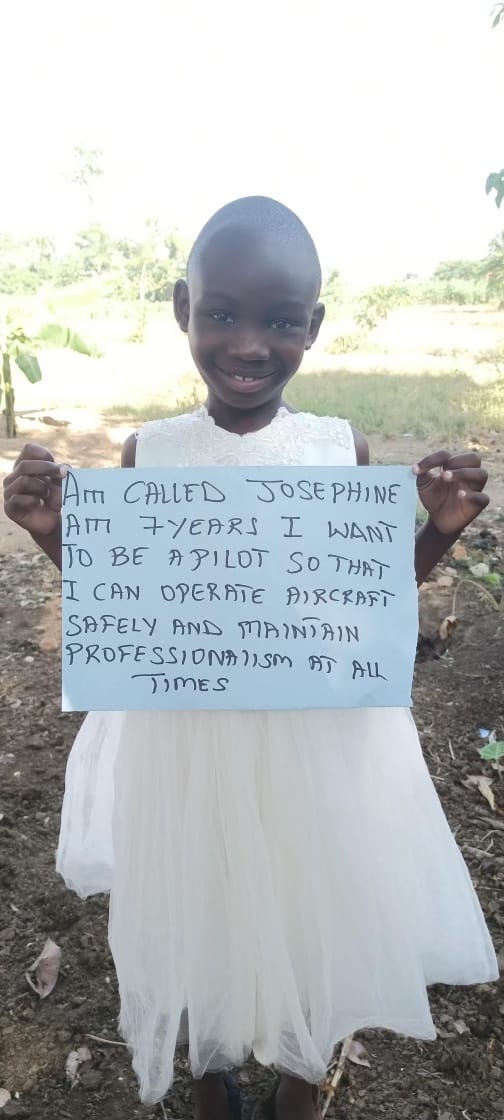 Am CALLED JOSEPHINE
AM 7YEARS I WANT
TO BE A PILOT SO THAT
I CAN OPERATE AIRCRAFT
SAFELY AND MAINTAIN
PROFESSIONALISM AT ALL
TIMES